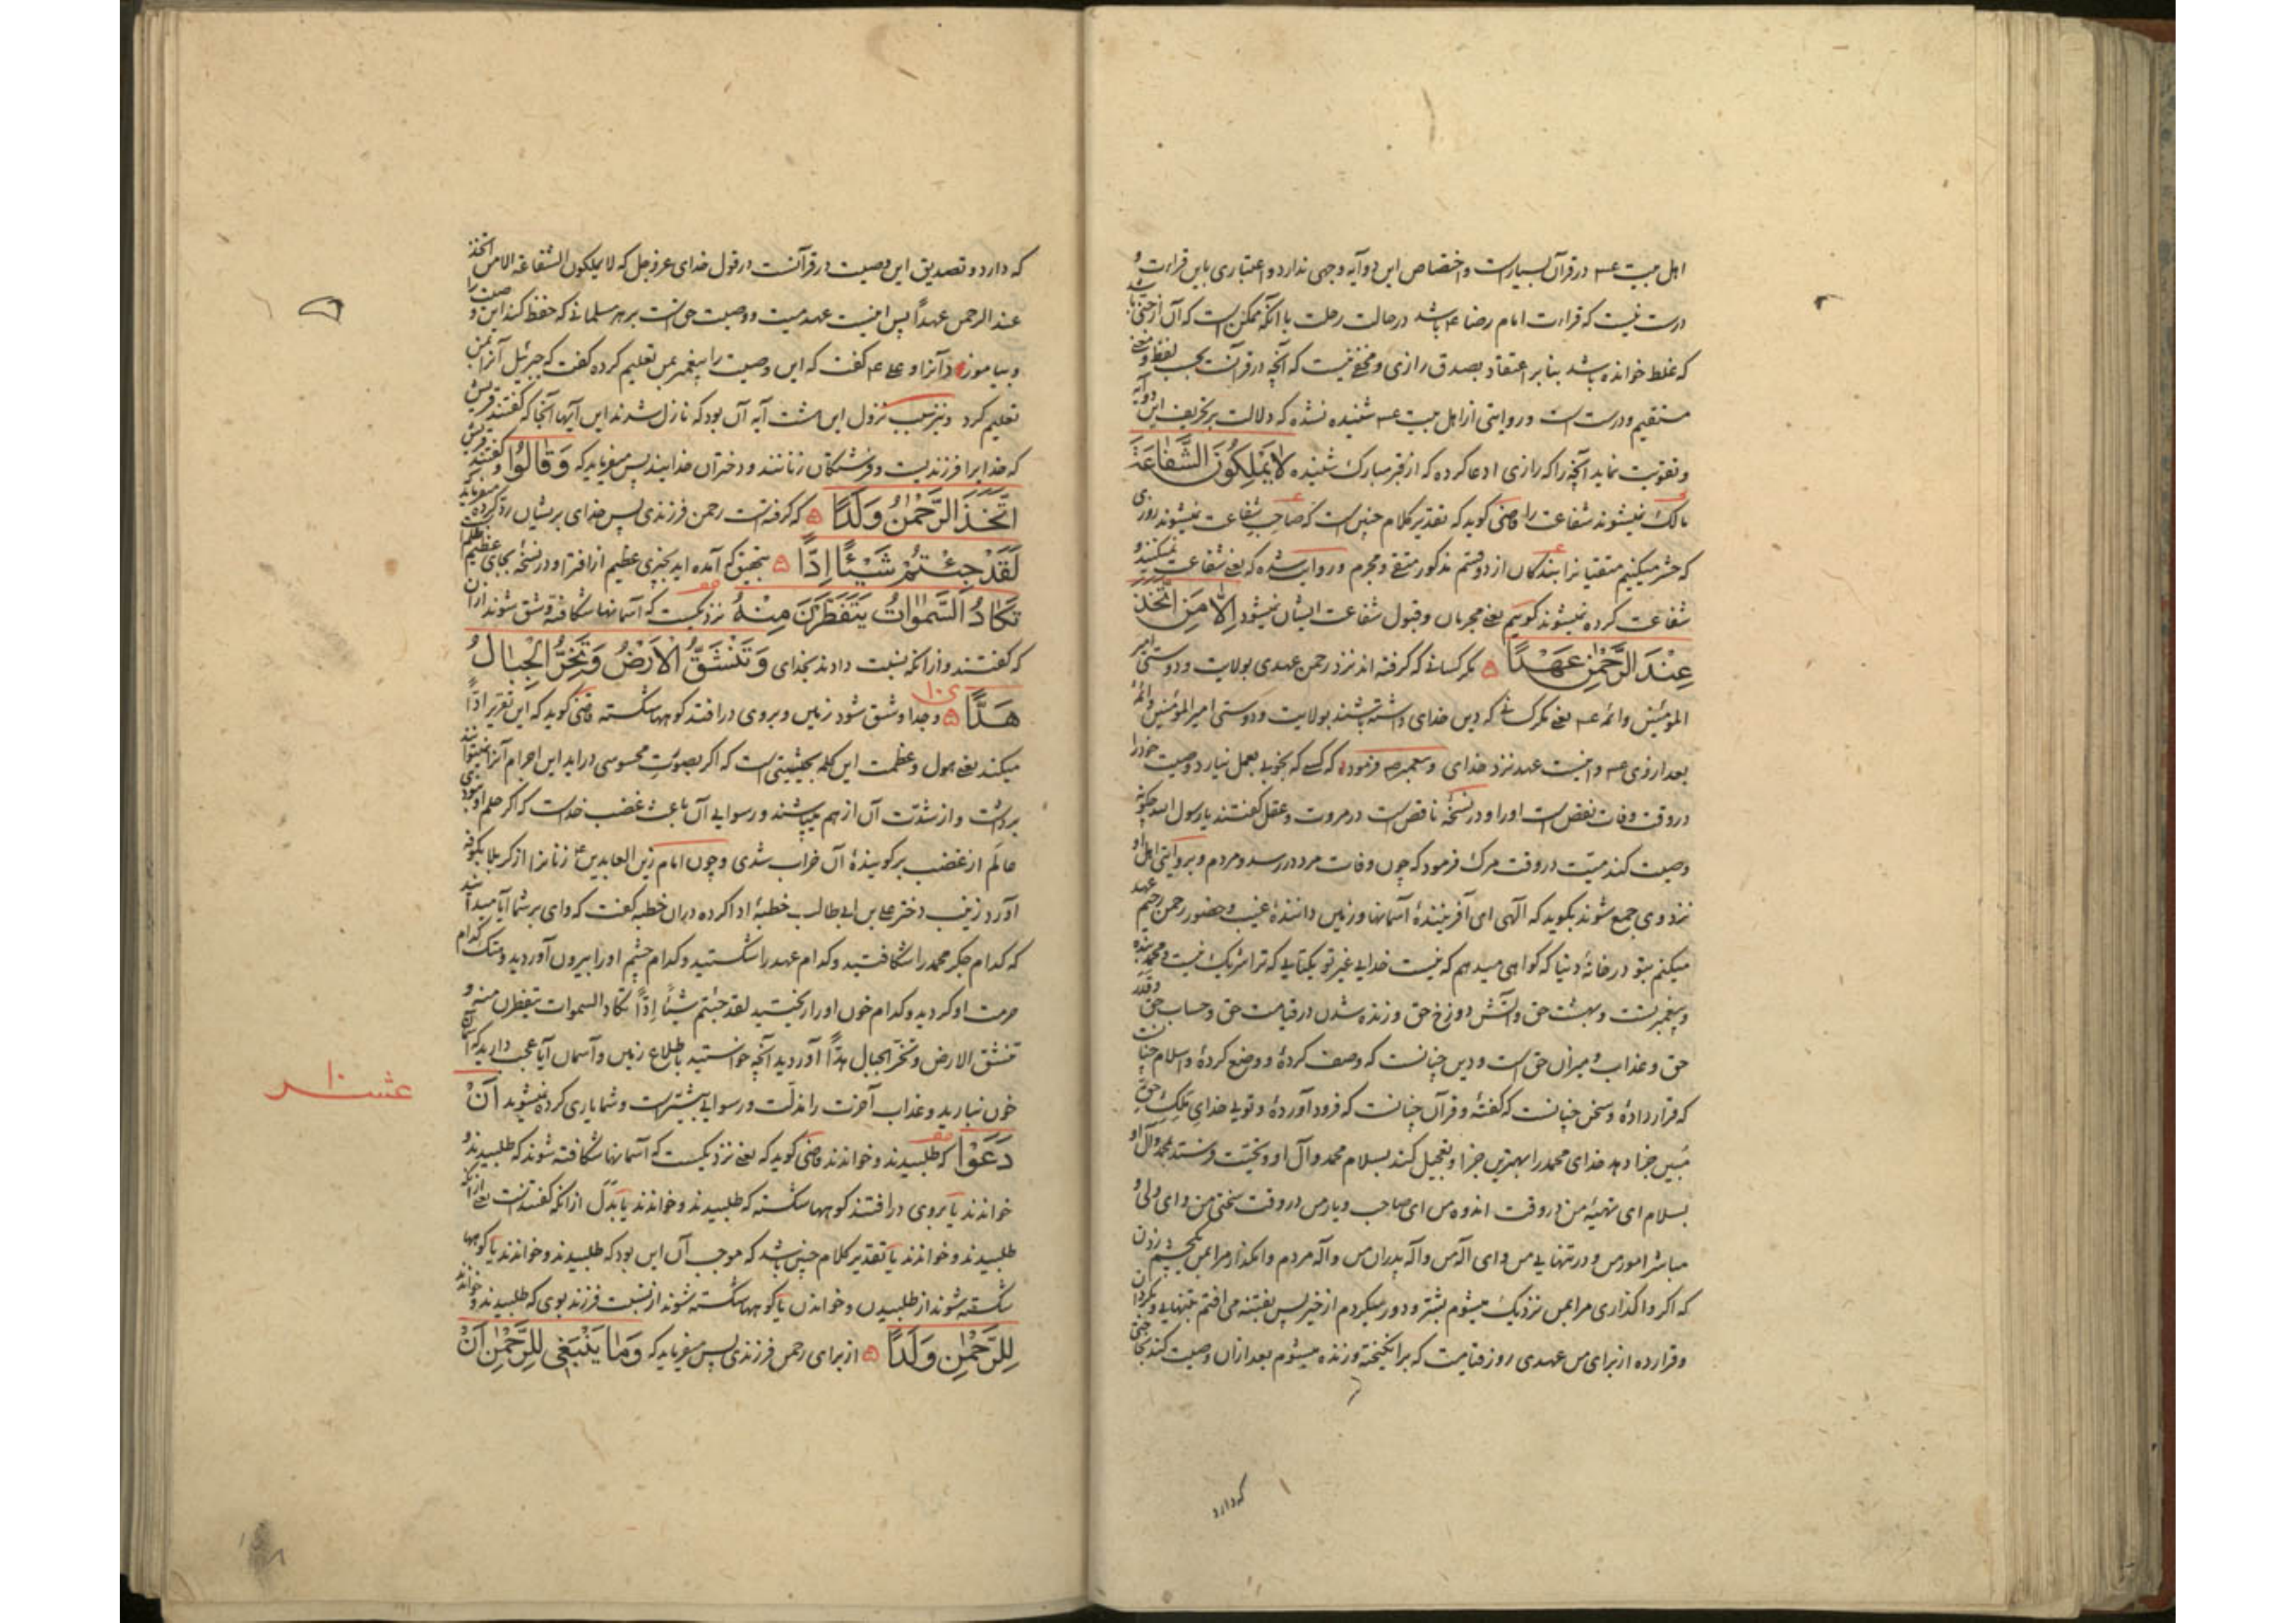 اهل بیت عـ در قرآن بسیارست و اختصاص این دو آیه وجهی ندارد و اعتباری باین قراءت و
درست نیست که قراءت امام رضا عـ باشد در حالت رحلت با آنکه ممکن است که آن از جنی باشد
که غلط خوانده باشد بنا بر اعتقاد بصدق رازی و مخفی نیست که آنچه در قرآنست بحسب لفظ و معنی
مستقیم و درست است و روایتی از اهل بیت عـ شنیده نشده که دلالت بر تحریف این دو آیه
و تقویت نماید آنچه را که رازی ادعا کرده که از قبر مبارک شنیده لَا يَمْلِكُونَ الشَّفَاعَةَ
مالک نمیشوند شفاعت را قاضی کوید که تقدیر کلام چنین است که صاحب شفاعت نمیشوند روزی
که حشر میکنیم متقیانرا بندکان از دو قسم مذکور متقی و مجرم و روایت شده که یعنی شفاعت نمیکنند و
شفاعت کرده نمیشوند کویم یعنی مجرمان و قبول شفاعت ایشان نمیشود إِلَّا مَنِ اتَّخَذَ
عِنْدَ الرَّحْمٰنِ عَهْدًا مکر کسانی که کرفته اند نزد رحمن عهدی بولایت و دوستی امیر
المؤمنین و ائمه عـ یعنی مکر کسانی که دین خدای داشته باشند بولایت و دوستی امیر المؤمنین و ائمهٔ
بعد از وی عـ و اینست عهد نزد خدای و پیغمبر صـ فرموده که کسی که بخوبی بعمل نیارد وصیت خود را
در وقت وفات نقص است او را و در نسخهٔ ناقص است در مروت و عقل کفتند یا رسول الله چکونه
وصیت کند میّت در وقت مرک فرمود که چون وفات مرد در رسد و مردم و بروایتی اهل او
نزد وی جمع شوند بکوید که الّهی ای آفرینندهٔ آسمانها و زمین دانندهٔ غیب و حضور رحمن رحیم عهد
میکنم بتو در خانهٔ دنیا که کواهی میدهم که نیست خدایی غیر تو یکتایی که ترا شریک نیست و محمد بنده
و پیغمبرتست و بهشت حق و آتش دوزخ حق و زنده شدن در قیامت حق و حساب حق و قدر
حق و عذاب و میزان حق است و دین چنانست که وصف کردهٔ و وضع کردهٔ و اسلام چنانست
که قرار دادهٔ و سخن چنانست که کفتهٔ و قرآن چنانست که فرود آوردهٔ و تویی خدای ملک حق
مبین جزا دهد خدای محمد را بهترین جزا و تعجیل کند بسلام محمد و آل او و تحیّت فرستد محمد و آل او
بسلام ای تهیهٔ من در وقت اندوه من ای صاحب و یار من در وقت سختی من و ای ولی و
مباشر امور من و در تنهایی من و ای اله من و اله پدران من و اله مردم وامکذار مرا بمن یکچشم زدن
که اکر واکذاری مرا بمن نزدیک میشوم بشر و دور میکردم از خیر پس بفتنه می افتم بتنهایی و بکردان
و قرار ده از برای من عهدی روز قیامت که برانکیخته و زنده میشوم بعد از آن وصیت کند بحاجتی
که دارد
که دارد و تصدیق این وصیت در قرآنست در قول خدای عز و جل که لا یملکون الشفاعة الا من اتخذ
عند الرحمن عهداً پس اینست عهد میت و وصیت حق است بر هر مسلمانی که حفظ کند این وصیت را
و بیاموزد آنرا و علی عـ کفت که این وصیت را پیغمبر بمن تعلیم کرده کفت که جبرئیل آنرا بمن
تعلیم کرد و نیز سبب نزول این هشت آیه آن بود که نازل شدند این آیها آنجا که کفتند قریش
که خدایرا فرزندیست و فرشتکان زنانند و دختران خدایند پس میفرماید که وَقَالُوا و کفتند قریش
اتَّخَذَ الرَّحْمٰنُ وَلَدًا که کرفته است رحمن فرزندی پس خدای بریشان رد کرده میفرماید
لَقَدْ جِئْتُمْ شَيْئًا إِدًّا بتحقیق که آمده اید بچیزی عظیم از افترا و در نسخهٔ بجای عظیم ظلم است
تَكَادُ السَّمٰوَاتُ يَتَفَطَّرْنَ مِنْهُ نزدیکست که آسمانها شکافته و شق شوند از آن
که کفتند و از آنکه نسبت دادند بخدای وَتَنْشَقُّ الْأَرْضُ وَتَخِرُّ الْجِبَالُ
هَدًّا و جدا و شق شود زمین و بروی در افتند کوهها شکسته قاضی کوید که این تقریر ادّا
میکند یعنی هول و عظمت این کلمه بحیثیتی است که اکر بصورت محسوسی دراید این اجرام آنرا نمیتوانند
برداشت و از شدّت آن از هم میپاشند و رسوایی آن باعث غضب خداست که اکر حلم او نبودی
عالم از غضب بر کویندهٔ آن خراب شدی و چون امام زین العابدین زنانرا از کربلا بکوفه
آورد زینب دختر علی بن ابی طالب خطبهٔ ادا کرده در ان خطبه کفت که وای بر شما آیا میدانید
که کدام جکر محمد را شکافتید و کدام عهد را شکستید و کدام چشم او را بیرون آوردید و هتک کدام
حرمت او کردید و کدام خون او را ریختید لقد جئتم شیئاً إدّاً تکاد السموات یتفطرن منه و
تنشق الارض و تخر الجبال هدّاً آوردید آنچه خواستید باطلاع زمین و آسمان آیا عجب دارید که آسمان
خون نبارید و عذاب آخرت را مذلّت و رسوایی بیشترست و شما یاری کرده نمیشوید أَنْ
دَعَوْا که طلبیدند و خواندند قاضی کوید که یعنی نزدیکست که آسمانها شکافته شوند که طلبیدند و
خواندند یا بروی در افتند کوهها شکسته که طلبیدند و خواندند یا بدل از آنکه کفتند است یعنی از آنکه
طلبیدند و خواندند یا تقدیر کلام چنین باشد که موجب آن این بود که طلبیدند و خواندند یا کوهها
شکسته شوند از طلبیدن و خواندن یا کوهها شکسته شوند از نسبت فرزند بوی که طلبیدند و خواندند
لِلرَّحْمٰنِ وَلَدًا از برای رحمن فرزندی پس میفرماید که وَمَا يَنْبَغِي لِلرَّحْمٰنِ أَنْ
عشـــر